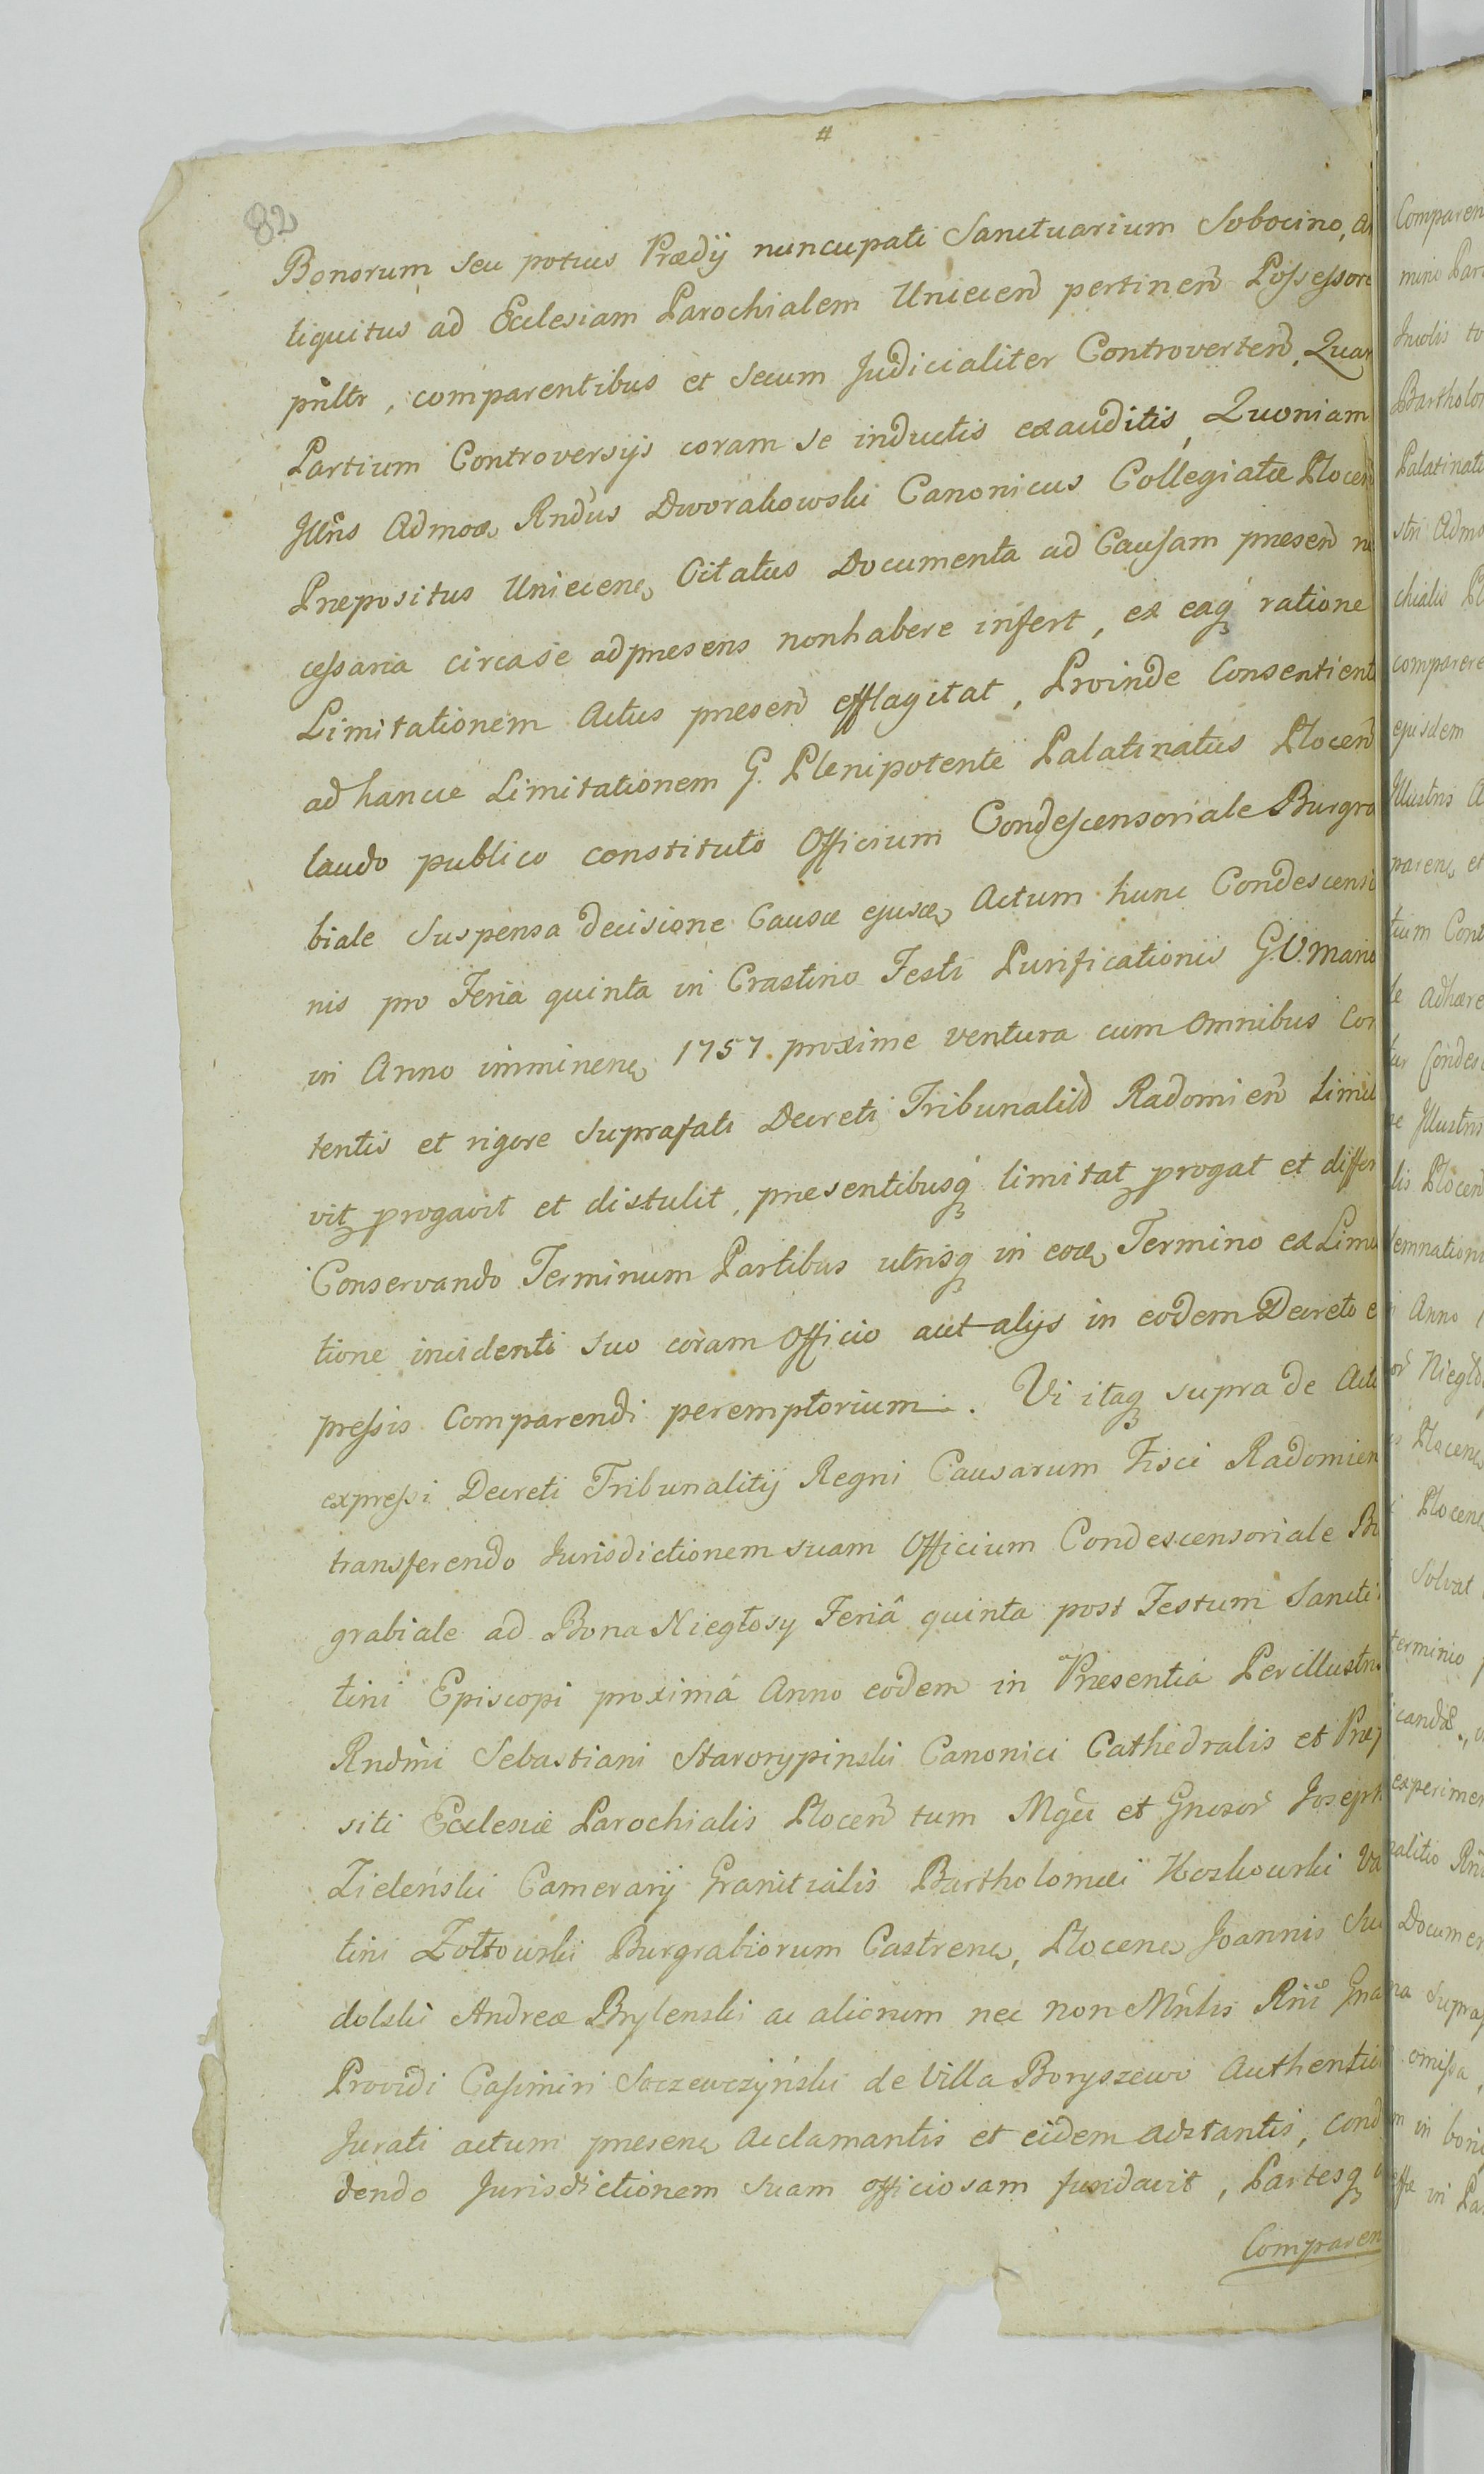 #
82
Bonorum seu potius Prædij nuncupati Sanctuarium Sobocino, an
tiquitus ad Ecclesiam Parochialem Uniecen̄ pertinen̄ Possessore
pn̄ltr, comparentibus et secum Judicialiter Controverten̄, Quar
Partium Controversijs coram se inductis exauditis, Quoniam
Jlln̄s Admoɖ Rndus Dworakowski Canonicus Collegiatæ Plocen̄
Præpositus Uniecen̄ Citatus Documenta ad Causam præsen̄ ne
cessaria circa se adpræsens nonhabere infert, ex eaq́ ratione
Limitationem Actus præsen̄ efflagitat, Proinde Consentiente
ad hancce Limitationem G. Plenipotente Palatinatus Plocen̄
laudo publico constituto Officium Condescensoriale Burgra
biale Suspensa decisione Causæ ejusɖ Actum hunc Condescensio
nis pro Feria quinta in Crastino Festi Purificationis G.V. Mariæ
in Anno imminen̄ 1757. proxime ventura cum Omnibus Con
tentis et rigore suprafati Decreti Tribunalis Radomien̄ Limita
vit progavit et distulit, præsentibusq́ limitat progat et differt
Conservando Terminum Partibus utrisq́ in eoɖ Termino ex Limita
tione incidenti suo coram Officio aut alijs in eodem Decreto ex
pressis Comparendi peremptorium. Vi itaq́ supra de Actu
expressi Decreti Tribunalitij Regni Causarum Fisci Radomien
transferendo Jurisdictionem suam Officium Condescensoriale Bu
grabiale ad Bona Niegłosy Feriâ quinta post Festum Sancti
tini Episcopi proximâ Anno eodem in Præsentia Perillustris
Rndmi Sebastiani Starorypinski Canonici Cathedralis et Præp
siti Ecclesiæ Parochialis Plocen̄ tum Mgci et Gnosor̄ Joseph
Zieleński Camerarij Granitialis Bartholomæi Kozkowski Va
tini Zołtowski Burgrabiorum Castren̄, Plocen̄ Joannis Su
dolski Andreæ Brylenski ac aliorum nec non Mn̄lis Rn̄i Gna
Providi Casimiri Soczewczyński de Villa Boryszewo Authentici
Jurati actum præsen̄ Acclamantis et eidem adstantis, cond
dendo Jurisdictionem suam officiosam fundavit, Partesq́
Comparen
Comparen
mini Par
Incolis to
Bartholom
Palatinatu
stri Admo
chialis Pl
comparere
ejusdem
Jllustris A
paren̄ et
tium Cont
le Adhære
tur Condes
ne Jllustris
lis Plocen̄
demnationi
Anno
or̄ Niegło
Plocen̄
Plocen̄
Solvat
termino
icandæ
experimen
alitio
Documen
na supra
omissa,
in boni
esse in Pa